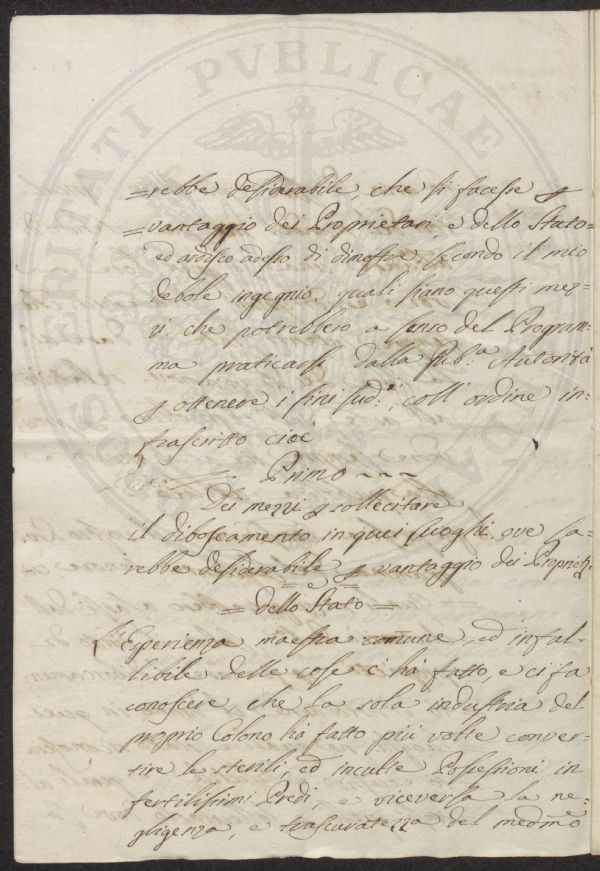 =rebbe desiderabile, che si facesse p
=vantaggio dei Proprietari, e dello Stato=
ed ardisco adesso di dimostre. secondo il mio
debole ingegnio, quali siano questi mez-
zi, che potrebbero a senso del Program-
ma praticarsi dalla Pub.a Autorità
p ottenere i fini sud.i, coll'ordine in-
frascritto cioè
Primo
Dei mezzi p sollecitare
il diboscamento in quei luoghi, ove sa-
rebbe desiderabile p vantaggio dei Propriet.i
= e =
= dello Stato =
L'Esperienza maestra comune, ed infal-
libile delle cose ci hà fatto, e ci fa
conoscere che la sola industria del
proprio Colono hà fatto più volte conver-
tire le sterili, ed inculte Possessioni in
fertilissimi Predi, e viceversa la ne-
gligenza, e trascuratezza del medmo